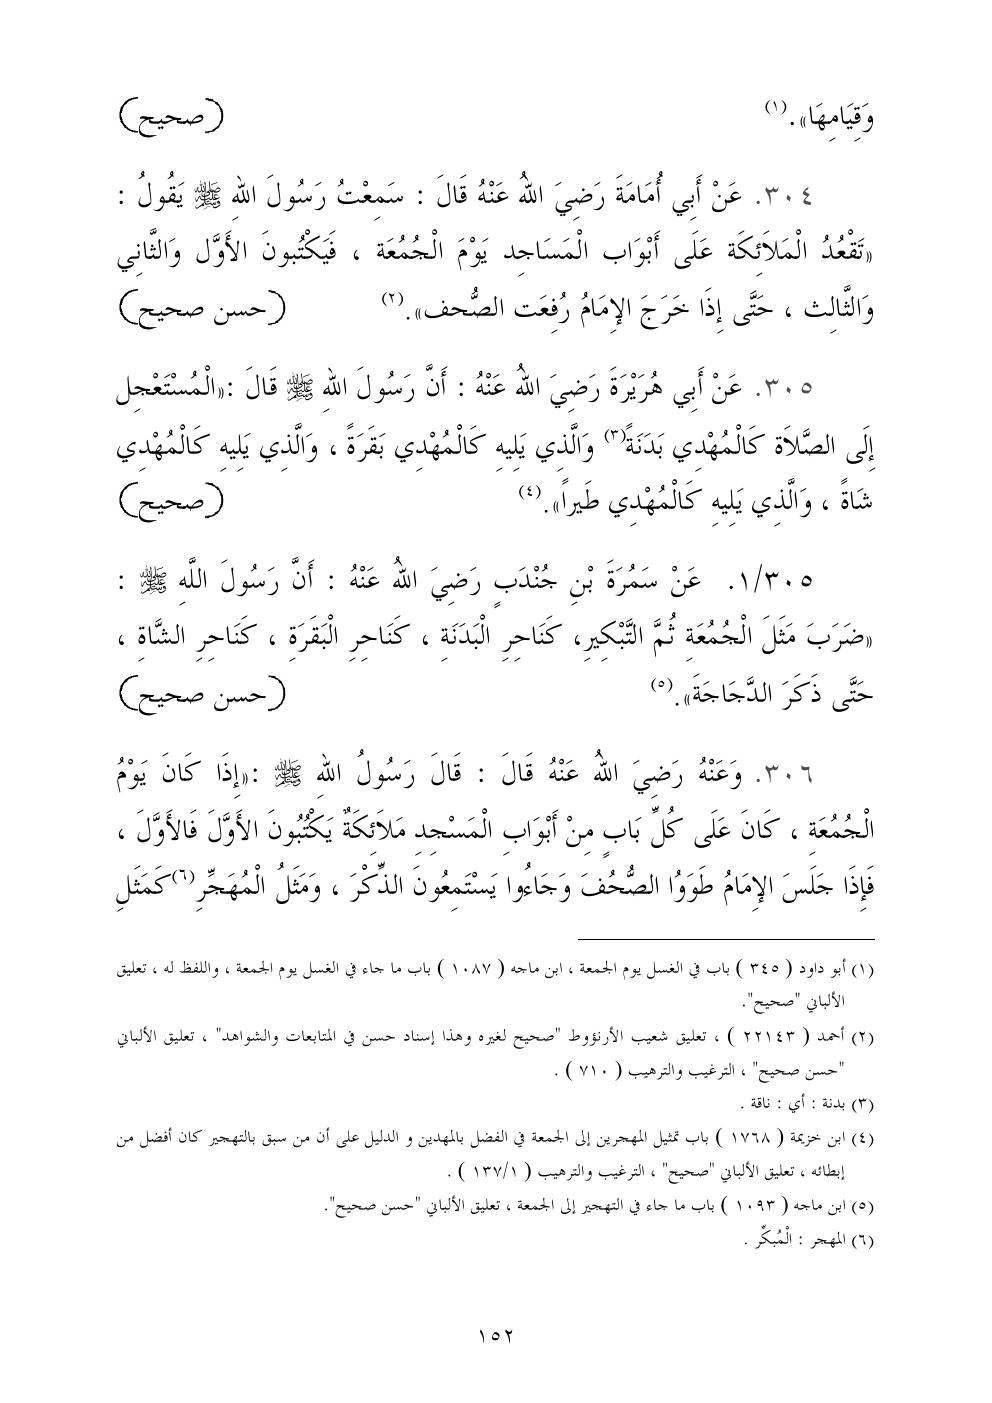 وَقِيَامِهَا».(١) (صحيح)
٣٠٤. عَنْ أَبِي أُمَامَةَ رَضِيَ اللهُ عَنْهُ قَالَ : سَمِعْتُ رَسُولَ اللهِ ﷺ يَقُولُ :
«تَقْعُدُ الْمَلاَئِكَة عَلَى أَبْوَاب الْمَسَاجِد يَوْمَ الْجُمُعَة ، فَيَكْتُبونَ الأَوَّل وَالثَّانِي
وَالثَّالِث ، حَتَّى إِذَا خَرَجَ الإِمَامُ رُفِعَت الصُّحف».(٢) (حسن صحيح)
٣٠٥. عَنْ أَبِي هُرَيْرَةَ رَضِيَ اللهُ عَنْهُ : أَنَّ رَسُولَ اللهِ ﷺ قَالَ :«الْمُسْتَعْجِل
إِلَى الصَّلاَة كَالْمُهْدِي بَدَنَةً(٣) وَالَّذِي يَلِيهِ كَالْمُهْدِي بَقَرَةً ، وَالَّذِي يَلِيهِ كَالْمُهْدِي
شَاةً ، وَالَّذِي يَلِيهِ كَالْمُهْدِي طَيراً».(٤) (صحيح)
١/٣٠٥. عَنْ سَمُرَةَ بْنِ جُنْدَبٍ رَضِيَ اللهُ عَنْهُ : أَنَّ رَسُولَ اللَّهِ ﷺ :
«ضَرَبَ مَثَلَ الْجُمُعَةِ ثُمَّ التَّبْكِيرِ، كَنَاحِرِ الْبَدَنَةِ ، كَنَاحِرِ الْبَقَرَةِ ، كَنَاحِرِ الشَّاةِ ،
حَتَّى ذَكَرَ الدَّجَاجَةَ».(٥) (حسن صحيح)
٣٠٦. وَعَنْهُ رَضِيَ اللهُ عَنْهُ قَالَ : قَالَ رَسُولُ اللهِ ﷺ :«إِذَا كَانَ يَوْمُ
الْجُمُعَةِ ، كَانَ عَلَى كُلِّ بَابٍ مِنْ أَبْوَابِ الْمَسْجِدِ مَلاَئِكَةٌ يَكْتُبُونَ الأَوَّلَ فَالأَوَّلَ ،
فَإِذَا جَلَسَ الإِمَامُ طَوَوُا الصُّحُفَ وَجَاءُوا يَسْتَمِعُونَ الذِّكْرَ ، وَمَثَلُ الْمُهَجِّرِ(٦)كَمَثَلِ
(١) أبو داود ( ٣٤٥ ) باب في الغسل يوم الجمعة ، ابن ماجه ( ١٠٨٧ ) باب ما جاء في الغسل يوم الجمعة ، واللفظ له ، تعليق
الألباني "صحيح".
(٢) أحمد ( ٢٢١٤٣ ) ، تعليق شعيب الأرنؤوط "صحيح لغيره وهذا إسناد حسن في المتابعات والشواهد" ، تعليق الألباني
"حسن صحيح" ، الترغيب والترهيب ( ٧١٠ ) .
(٣) بدنة : أي : ناقة .
(٤) ابن خزيمة ( ١٧٦٨ ) باب تمثيل المهجرين إلى الجمعة في الفضل بالمهدين و الدليل على أن من سبق بالتهجير كان أفضل من
إبطائه ، تعليق الألباني "صحيح" ، الترغيب والترهيب ( ١٣٧/١ ) .
(٥) ابن ماجه ( ١٠٩٣ ) باب ما جاء في التهجير إلى الجمعة ، تعليق الألباني "حسن صحيح".
(٦) المهجر : الْمُبكِّر .
١٥٢